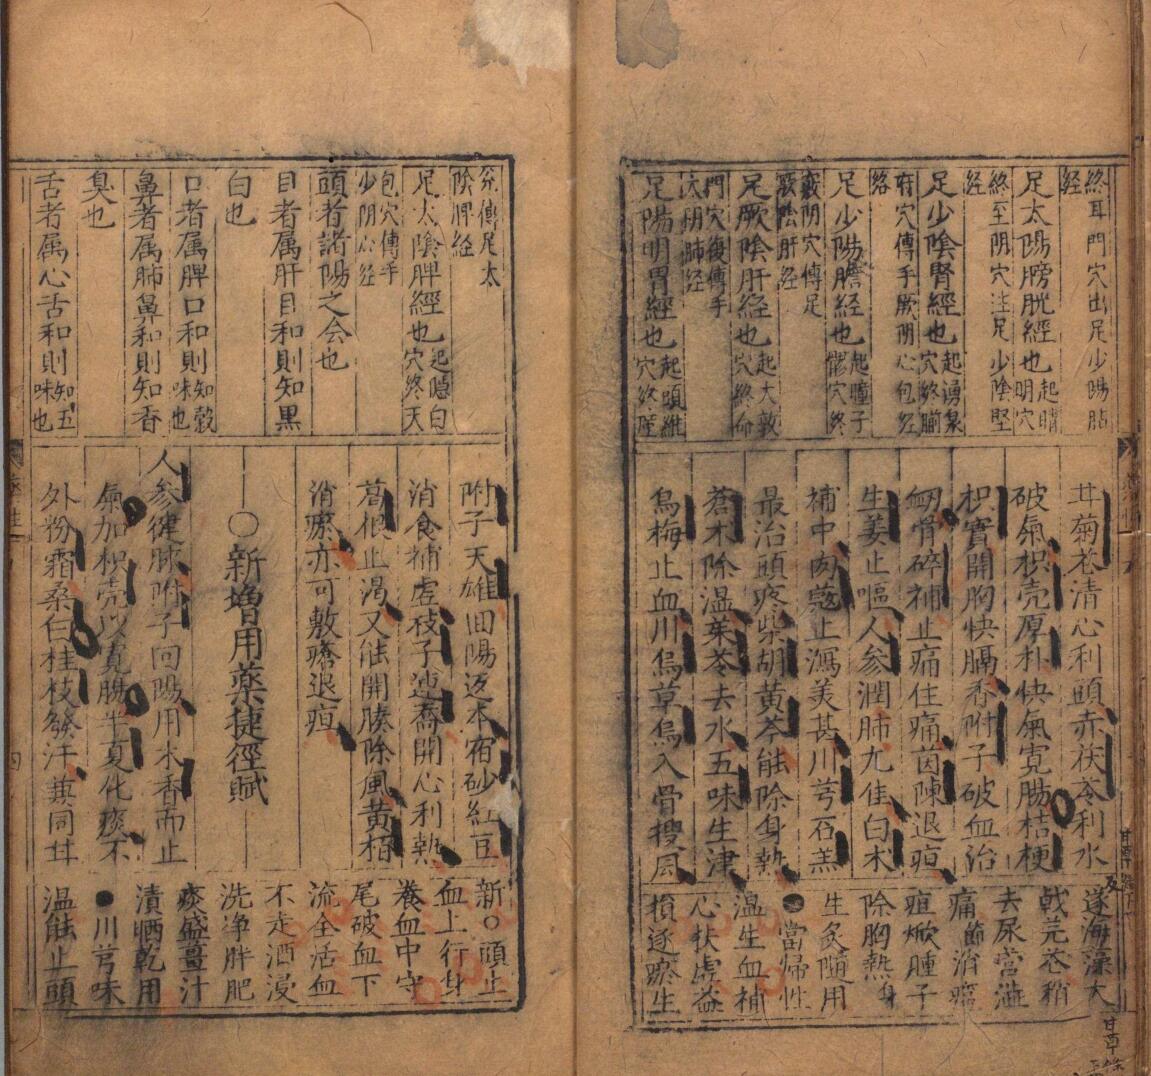 終耳門穴出足少陽胆
経
足太陽膀胱經也起睛明穴
終至阴穴注足少陰腎
経
足少陰腎經也起湧泉穴終腧
府穴傳手厥阴心包经
絡
足少陽膽經也起瞳子髎穴終
竅阴穴傳足
厥陰肝经
足厥陰肝经也起大敦穴終命
門穴復傳手
太阴肺经
足陽明胃經也起頭維穴終陛
兊傳足太
陰脾経
足太陰脾經也起隱白穴終天
包穴傳手
少阴心经
頭者諸陽之会也
目者属肝目和則知黒
白也
口者属脾口和則知穀味也
鼻者属肺鼻和則知香
臭也
舌者属心舌和則知五味也
甘菊花清心利頭赤茯苓利水
破氣枳壳厚朴快氣寛腸桔梗
枳實開胸快膈香附子破血治
骨碎補止痛住痛茵陳退疸
生姜止嘔人参潤肺尤佳白术
補中肉蔻止瀉美甚川芎石羔
最治頭疼柴胡黄芩能除身熱
蒼术除温茱苓去水五味生津
烏梅止血川烏草烏入骨搜風
附子天雄囬陽返本宿砂紅豆
消食補虗枝子連翹開心利熱
葛根止渇又能開腠除風黄栢
消瘀亦可敷瘡退疸
○新增用藥捷徑賦
人参健脾附子回陽用木香而止
氣加枳壳以寛腸半夏化痰不
外粉霜桑白桂枝發汗兼同甘
遂海藻大
戟芫花稍
去尿管澁
痛節消癰
疽焮腫子
除胸熱身
生炙隨用
●當帰性
温生血補
心扶虚益
損逐瘀生
新○頭止
血上行身
養血中守
尾破血下
流全活血
不走酒浸
洗净胖肥
痰盛薑汁
漬晒乾用
●川芎味
温能止頭